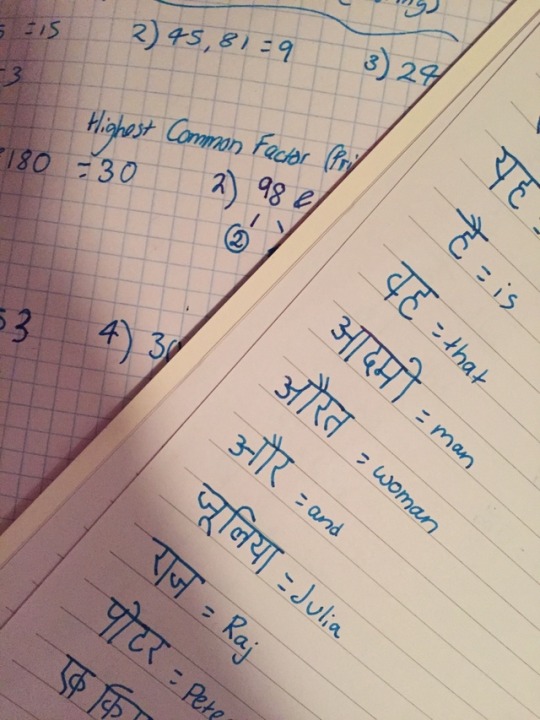 =15 2) 45, 81 = 9 3) 24
3
Highest Common Factor
180 = 30 2) 98
2
53 4)
यह =
है = is
वह = that
आदमी = man
औरत = woman
और = and
जूलिया = Julia
राज = Raj
पीटर =
एक